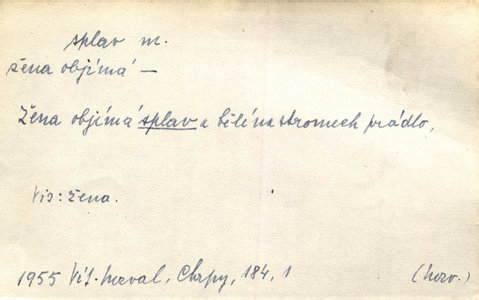 splav m.
žena objímá —
Žena objímá splav a bělí na stromech prádlo,
Viz: žena.
1955 Vít. Nezval, Chrpy, 184, 1 (Nezv.)